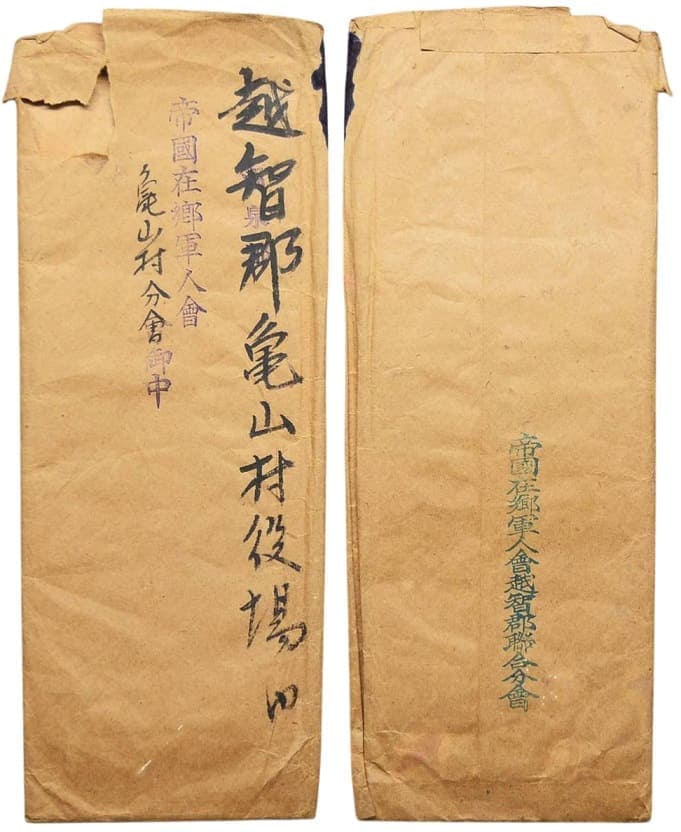 越智郡亀山村役場内
帝國在郷軍人會
亀山村分會御中
帝國在郷軍人會越智郡聯合分會